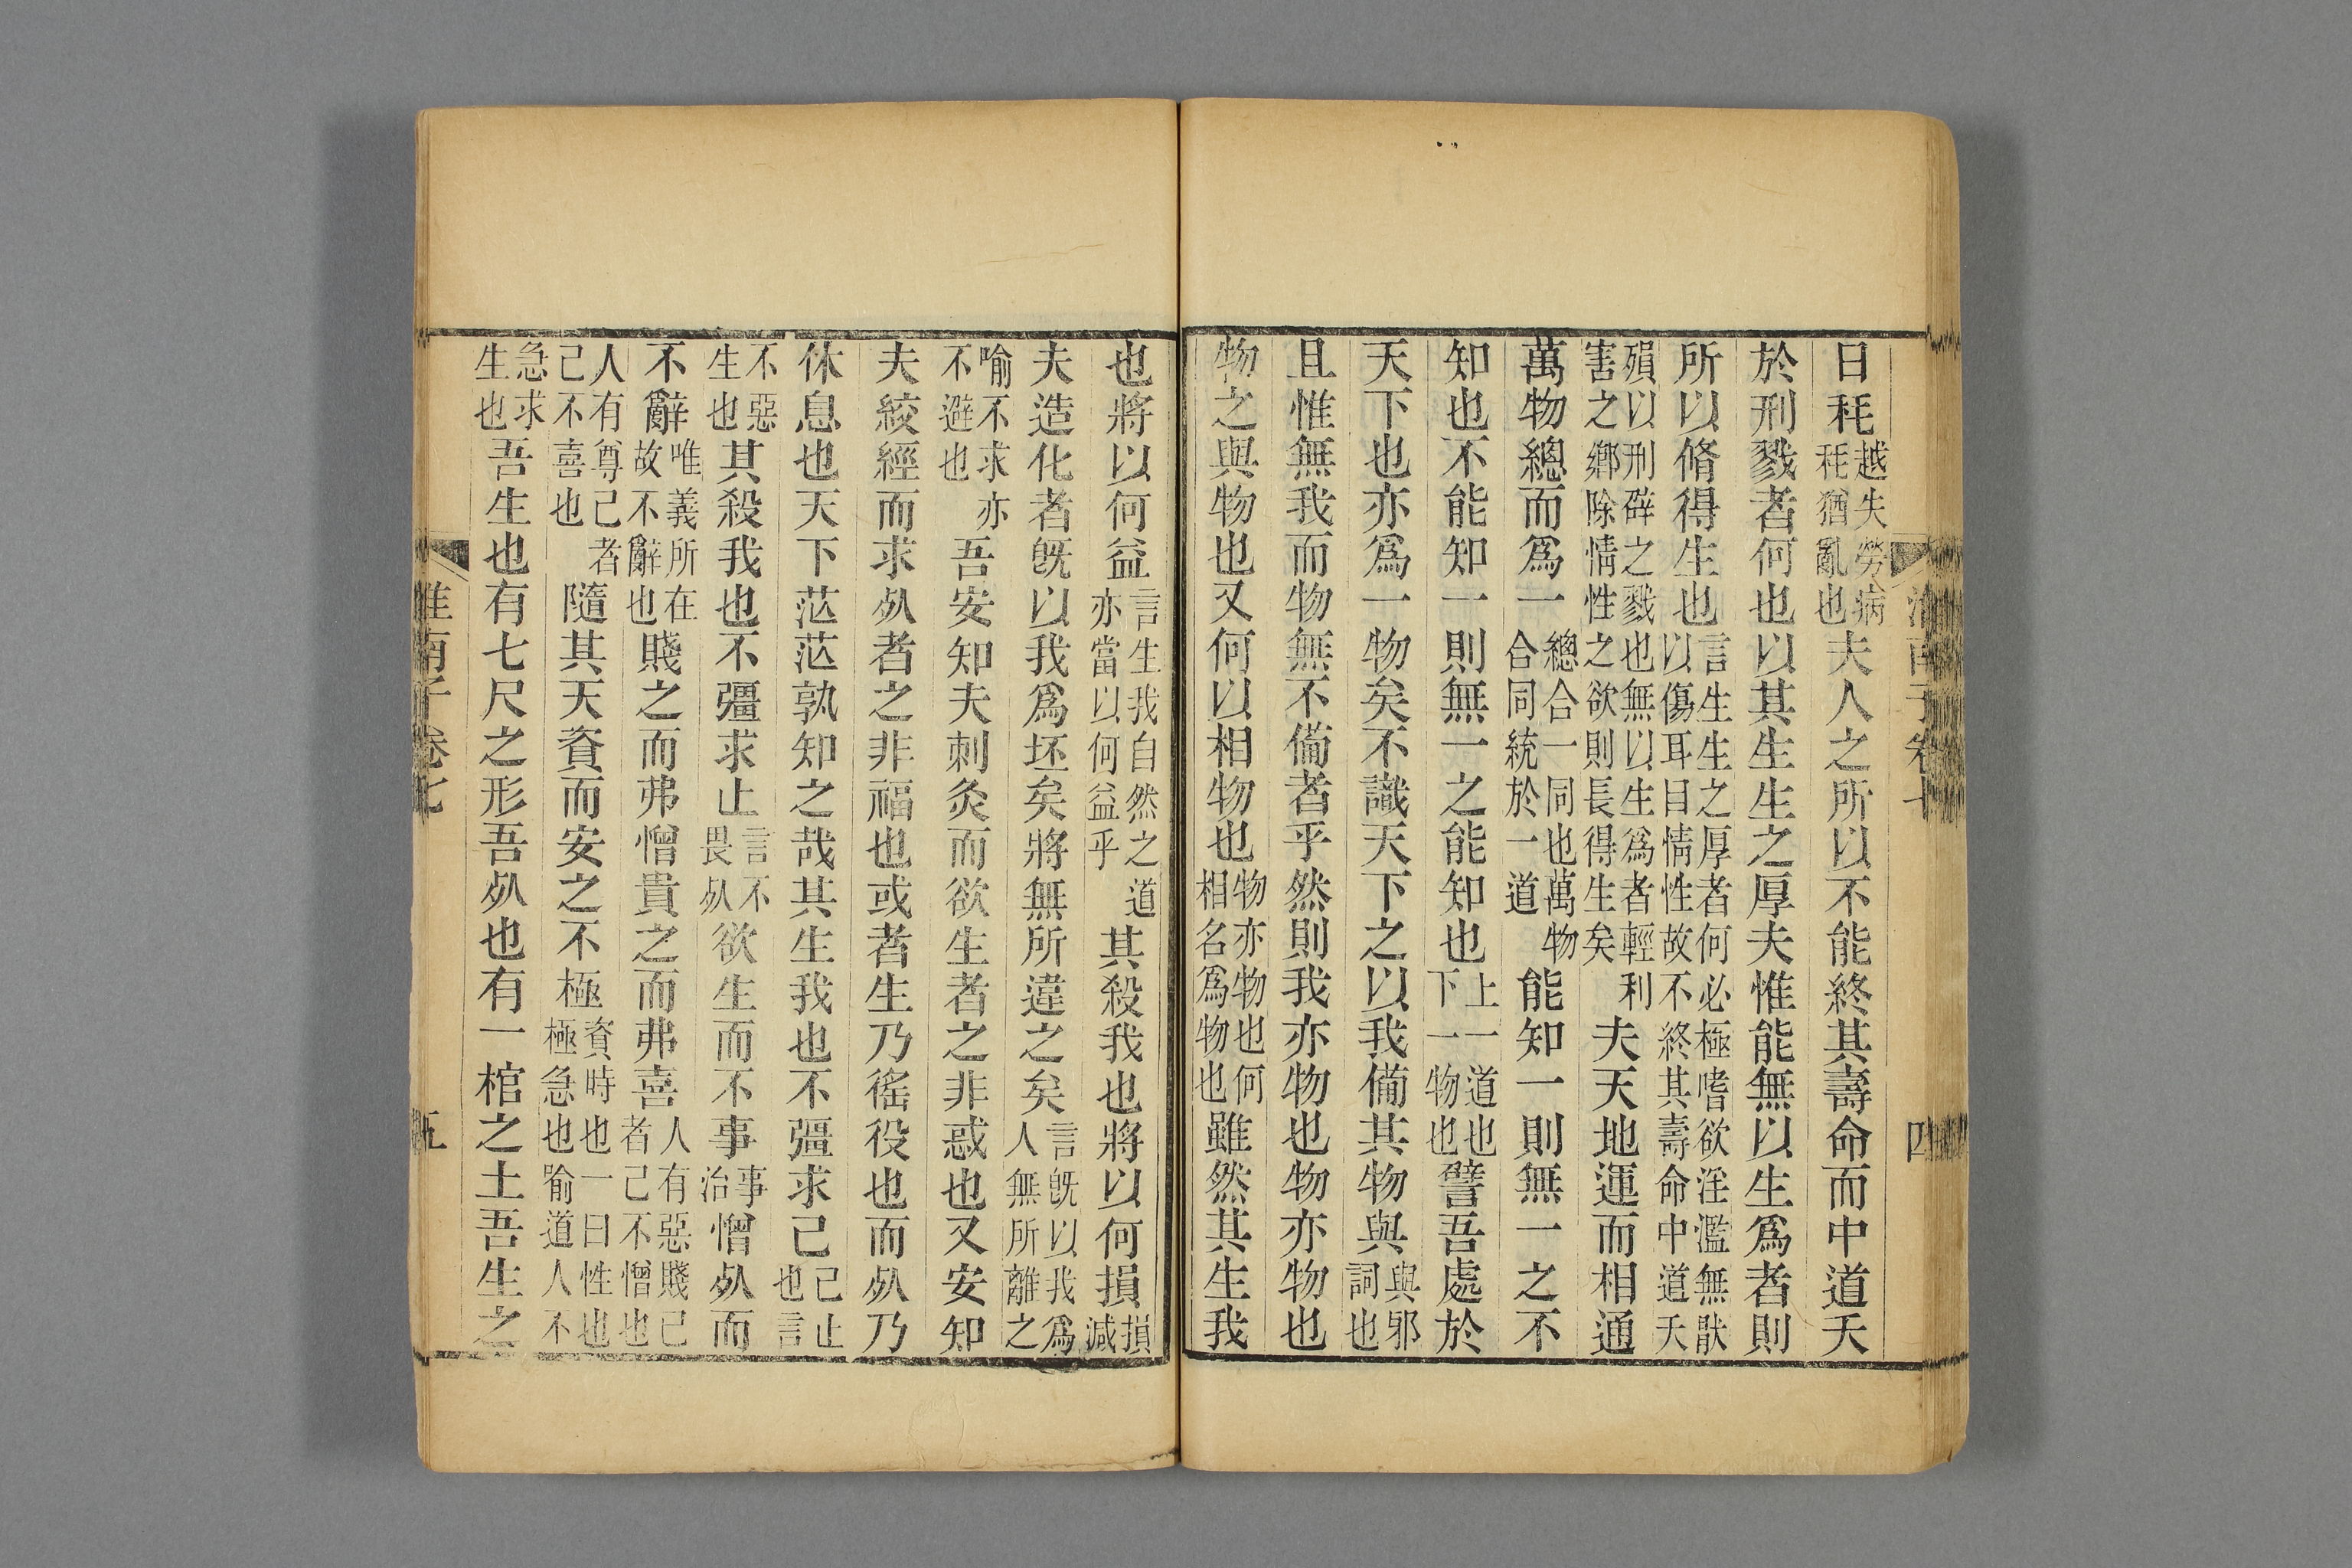 淮南子卷七　四
日秏越失勞病秏猶亂也夫人之所以不能終其壽命而中道夭
於刑戮者何也以其生生之厚夫惟能無以生爲者則
所以脩得生也言生生之厚者何必極嗜欲淫濫無猒以傷耳目情性故不終其壽命中道夭
殞以刑辟之戮也無以生爲者輕利害之鄉除情性之欲則長得生矣夫天地運而相通
萬物總而爲一總合一同也萬物合同統於一道能知一則無一之不
知也不能知一則無一之能知也上一道也下一物也譬吾處於
天下也亦爲一物矣不識天下之以我備其物與與邪詞也
且惟無我而物無不備者乎然則我亦物也物亦物也
物之與物也又何以相物也物亦物也何相名爲物也雖然其生我
也將以何益言生我自然之道亦當以何益乎其殺我也將以何損損減
夫造化者旣以我爲坯矣將無所違之矣言旣以我爲人無所離之
喻不求亦不避也吾安知夫刺灸而欲生者之非惑也又安知
夫絞經而求死者之非福也或者生乃徭役也而死乃
休息也天下茫茫孰知之哉其生我也不彊求已已止也言
不惡生也其殺我也不彊求止言不畏死欲生而不事事治憎死而
不辭唯義所在故不辭也賤之而弗憎貴之而弗喜人有惡賤己者己不憎也
人有尊己者己不喜也隨其天資而安之不極資時也一曰性也極急也喻道人不
急求生也吾生也有七尺之形吾死也有一棺之土吾生之
淮南子卷七　五